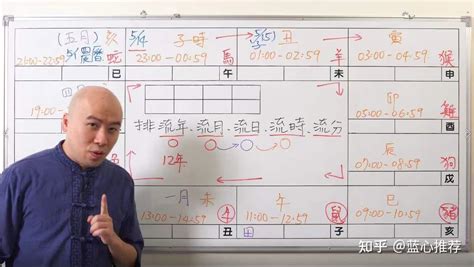 (五月) 亥
21:00-22:59
5/4 農曆
蛇
巳
5/4
子時
23:00-00:59
馬
午
5/(5)
丑
01:00-02:59
羊
未
寅
03:00-04:59
猴
申
四月
19:00-
05:00-06:59
雞
酉
排流年.流月.流日.流時.流分
12年
卯
07:00-08:59
狗
戌
一月 未
13:00-14:59
牛
丑
午
11:00-12:59
鼠
子
巳
09:00-10:59
豬
亥
知乎 @蓝心推荐